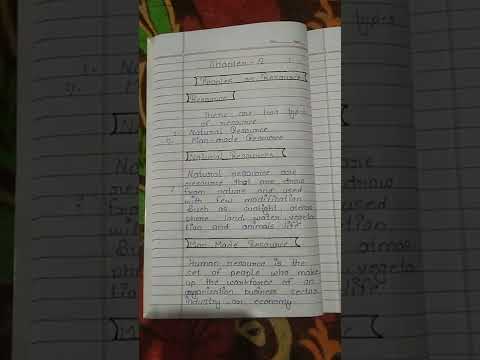 Chapter - 2
People as Resource
Resource
There are two types
of resource
1. Natural Resource
2. Man made Resource
Natural Resources
Natural resource are
resource that are draw
from nature and used
with few modification
Such as sunlight atmos
phere land, water, vegeta
tion and animals life
Man Made Resource
Human resource is the
set of people who make
up the workforce of an
organization business sector
industry or economy